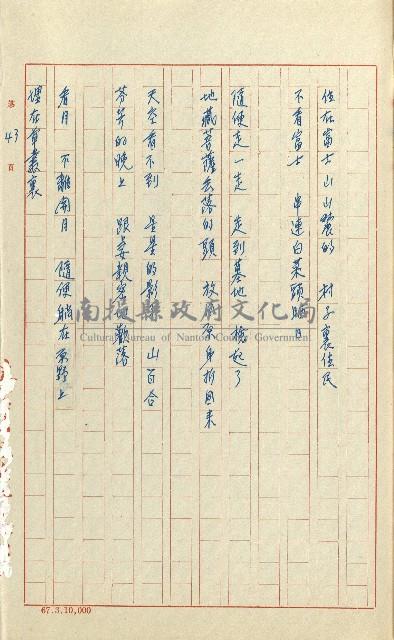 住在富士山山麓的 村子裏住民
不看富士 串連白菜頭晒日
隨便走一走 走到墓地 撿起了
地藏菩薩丟落的頭 放所原身折回來
天空看不到 星星的影 山百合
芬芳的晚上 跟妻親密地歡落
看月 不離開月 隨便躺在原野上
埋在草叢裏
第 43 頁
南投縣政府文化局
Cultural Bureau of Nantou County Government
67.3.10,000